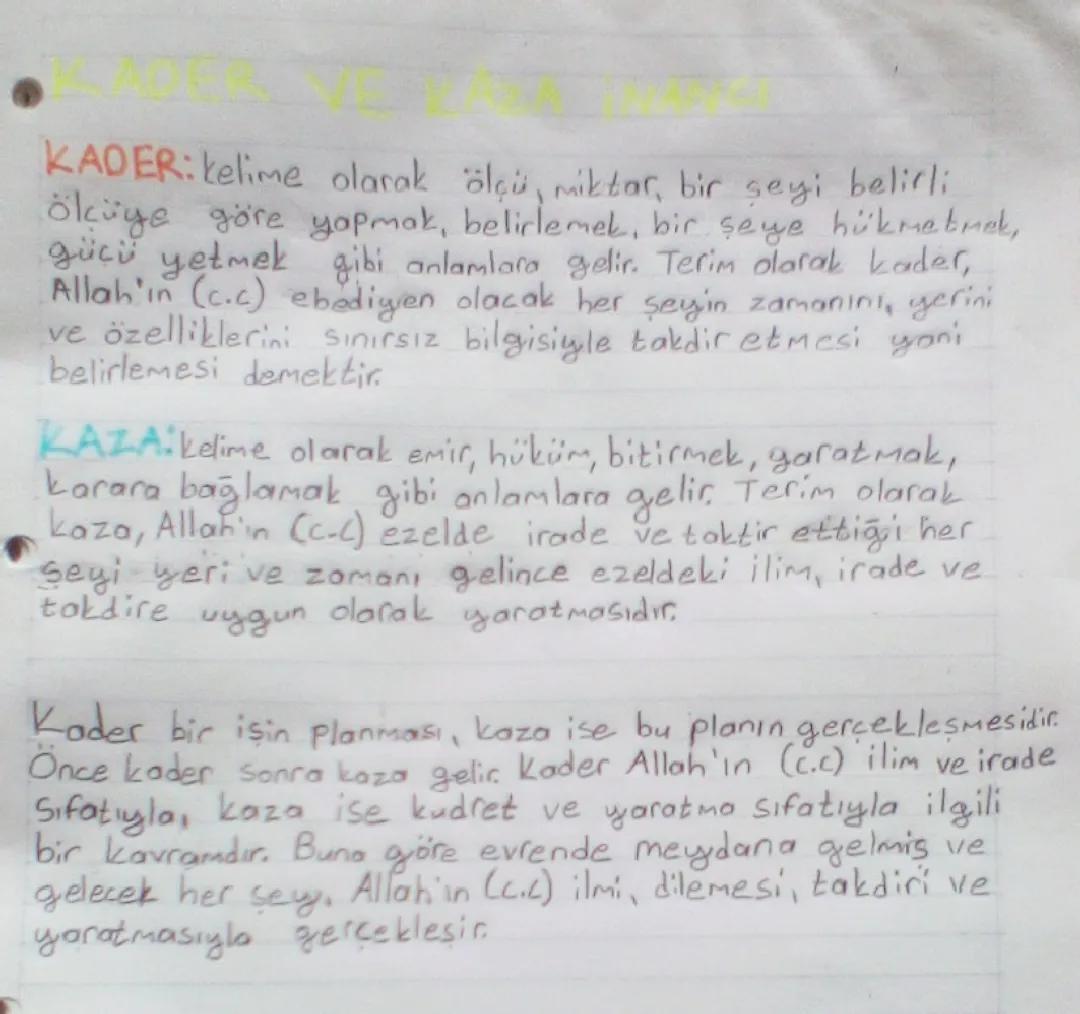 KADER VE KAZA İNANCI
KADER: kelime olarak ölçü, miktar, bir şeyi belirli
ölçüye göre yapmak, belirlemek, bir şeye hükmetmek,
gücü yetmek gibi anlamlara gelir. Terim olarak kader,
Allah'ın (c.c) ebediyen olacak her şeyin zamanını, yerini
ve özelliklerini sınırsız bilgisiyle takdir etmesi yani
belirlemesi demektir.
KAZA: kelime olarak emir, hüküm, bitirmek, yaratmak,
karara bağlamak gibi anlamlara gelir. Terim olarak
kaza, Allah'ın (c.c) ezelde irade ve taktir ettiği her
şeyi yeri ve zamanı gelince ezeldeki ilim, irade ve
takdire uygun olarak yaratmasıdır.
Kader bir işin planması, kaza ise bu planın gerçekleşmesidir.
Önce kader sonra kaza gelir. Kader Allah'ın (c.c) ilim ve irade
sıfatıyla, kaza ise kudret ve yaratma sıfatıyla ilgili
bir kavramdır. Buna göre evrende meydana gelmiş ve
gelecek her şey, Allah'ın (c.c) ilmi, dilemesi, takdiri ve
yaratmasıyla gerçekleşir.